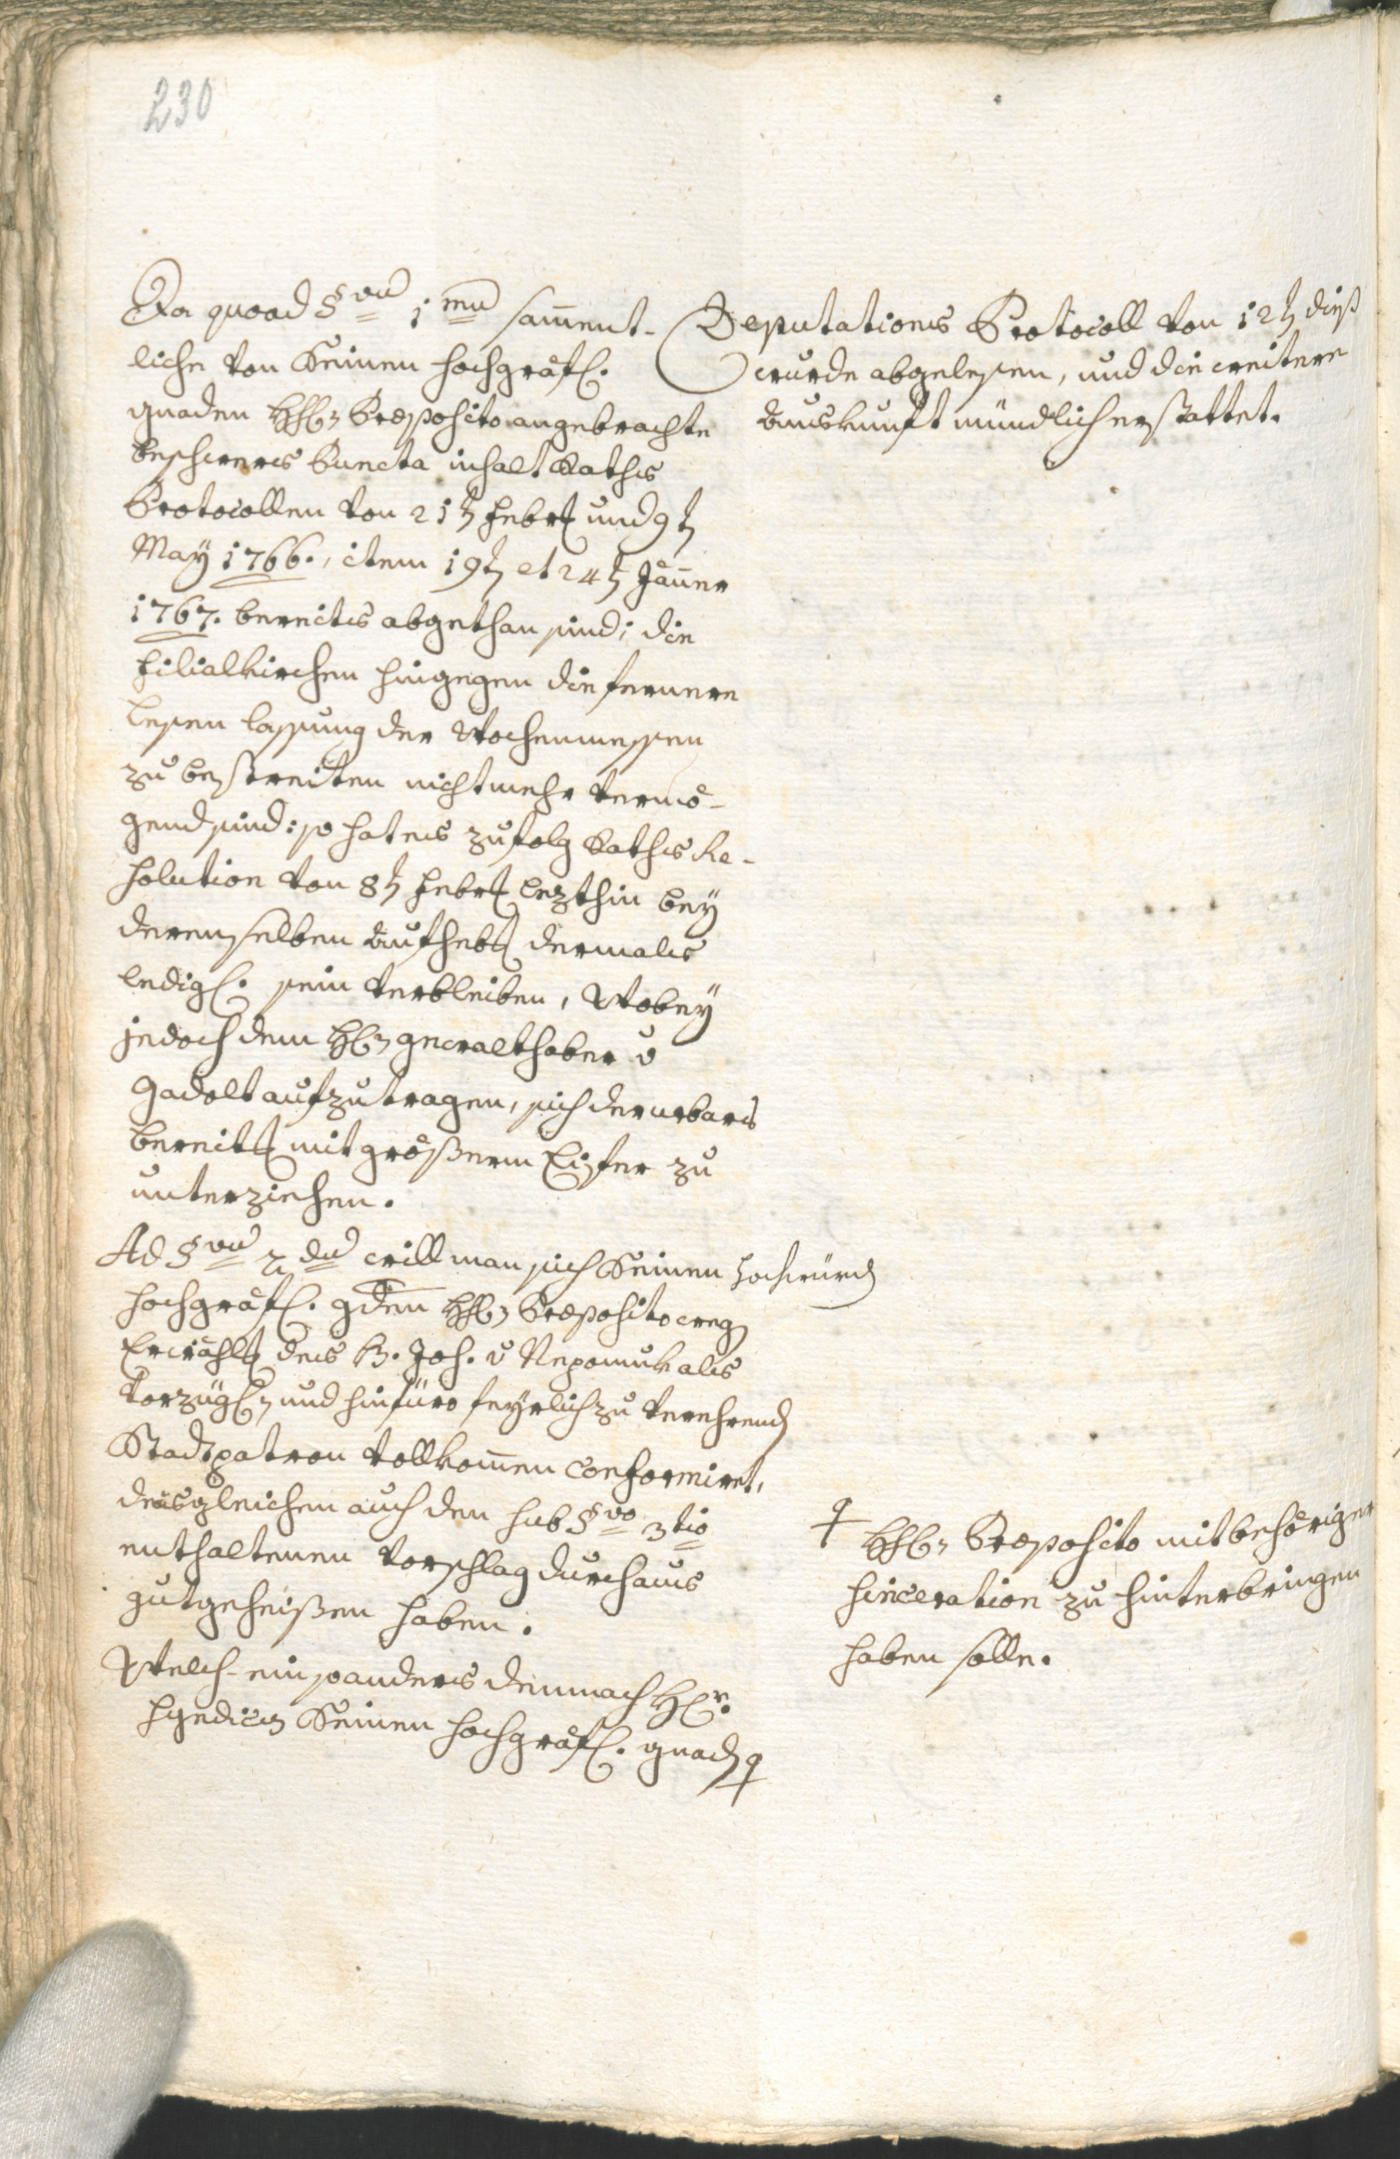 230
Da quoad §vu 1mu sam̄ent-
liche von Seinen hochgräfl.
gnaden HHl. Præposito angebrachte
beschwers Puncta inhalt Raths
Protocollen von 21t Febr und 9t
May 1766., item 19t et 24t Jäner
1767. bereits abgethan sind; die
filialkirchen hingegen die fernere
lesen lassung der Wochenmessen
zu bestreiten nicht mehr vermö-
gend sind: so hat es zufolg Raths Re-
solution von 8t Febr lezthin bey
derenselben Aufhebt dermals
ledigl. sein verbleiben, Wobey
jedoch dem Hl. gwalthaber v
Gadolt aufzutragen, sich der urbars
bereitt mit größerm Eifer zu
unterziehen.
Ad §vu 2du will man sich Seinen hochwürd
hochgräfl. gden HHl. Præposito weg
Erwählt des B. Joh. v Nepomuk als
Vorzügl. und hinfüro feyrlich zu verehrend
Stadtpatron vollkom̄en conformiret,
desgleichen auch den sub §vo 3tio
enthaltenen Vorschlag durchaus
gutgeheißen haben.
Welch-ein so anders demnach Hr.
Syndicus Seinen hochgräfl. gnad
Deputations Protocoll von 12t dieß
wurde abgelesen, und die weitere
Auskunft mündlich erstattet.
HHl. Præposito mit behöriger
Sinceration zu hinterbringen
haben solle.